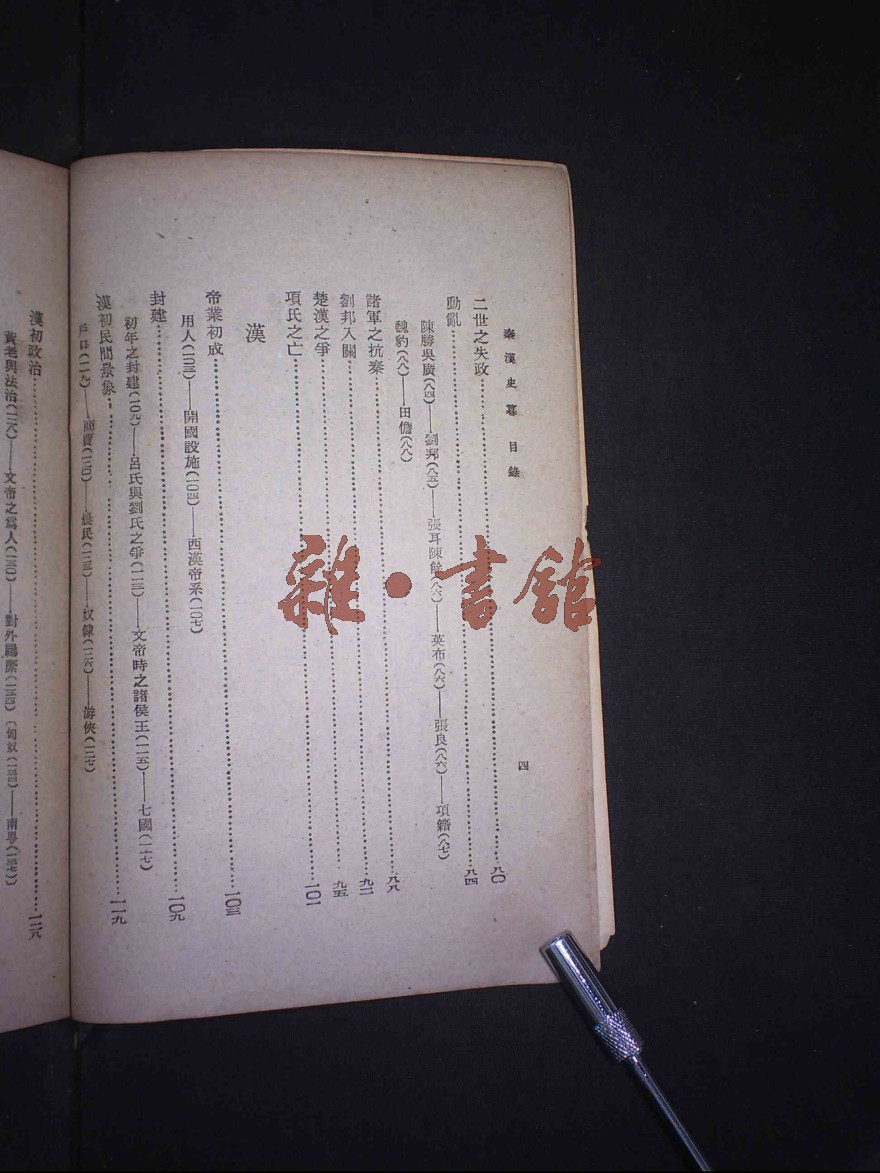 秦漢史纂 目錄
四
二世之失政……八〇
動亂……八四
陳勝吳廣(八四)——劉邦(八五)——張耳陳餘(八六)——英布(八六)——張良(八六)——項籍(八七)
魏豹(八八)——田儋(八八)
諸軍之抗秦……八八
劉邦入關……九二
楚漢之爭……九五
項氏之亡……一〇一
漢
帝業初成……一〇三
用人(一〇三)——開國設施(一〇四)——西漢帝系(一〇七)
封建……一〇九
初年之封建(一〇九)——呂氏與劉氏之爭(一一三)——文帝時之諸侯王(一一五)——七國(一一七)
漢初民間景象……一一九
戶口(一一九)——商賈(一二〇)——農民(一二三)——奴隸(一二六)——游俠(一二七)
漢初政治……一二八
黃老與法治(一二八)——文帝之爲人(一三〇)——對外羈縻(一三四)〔匈奴(一三四)——南粵(一三七)
雜·書館